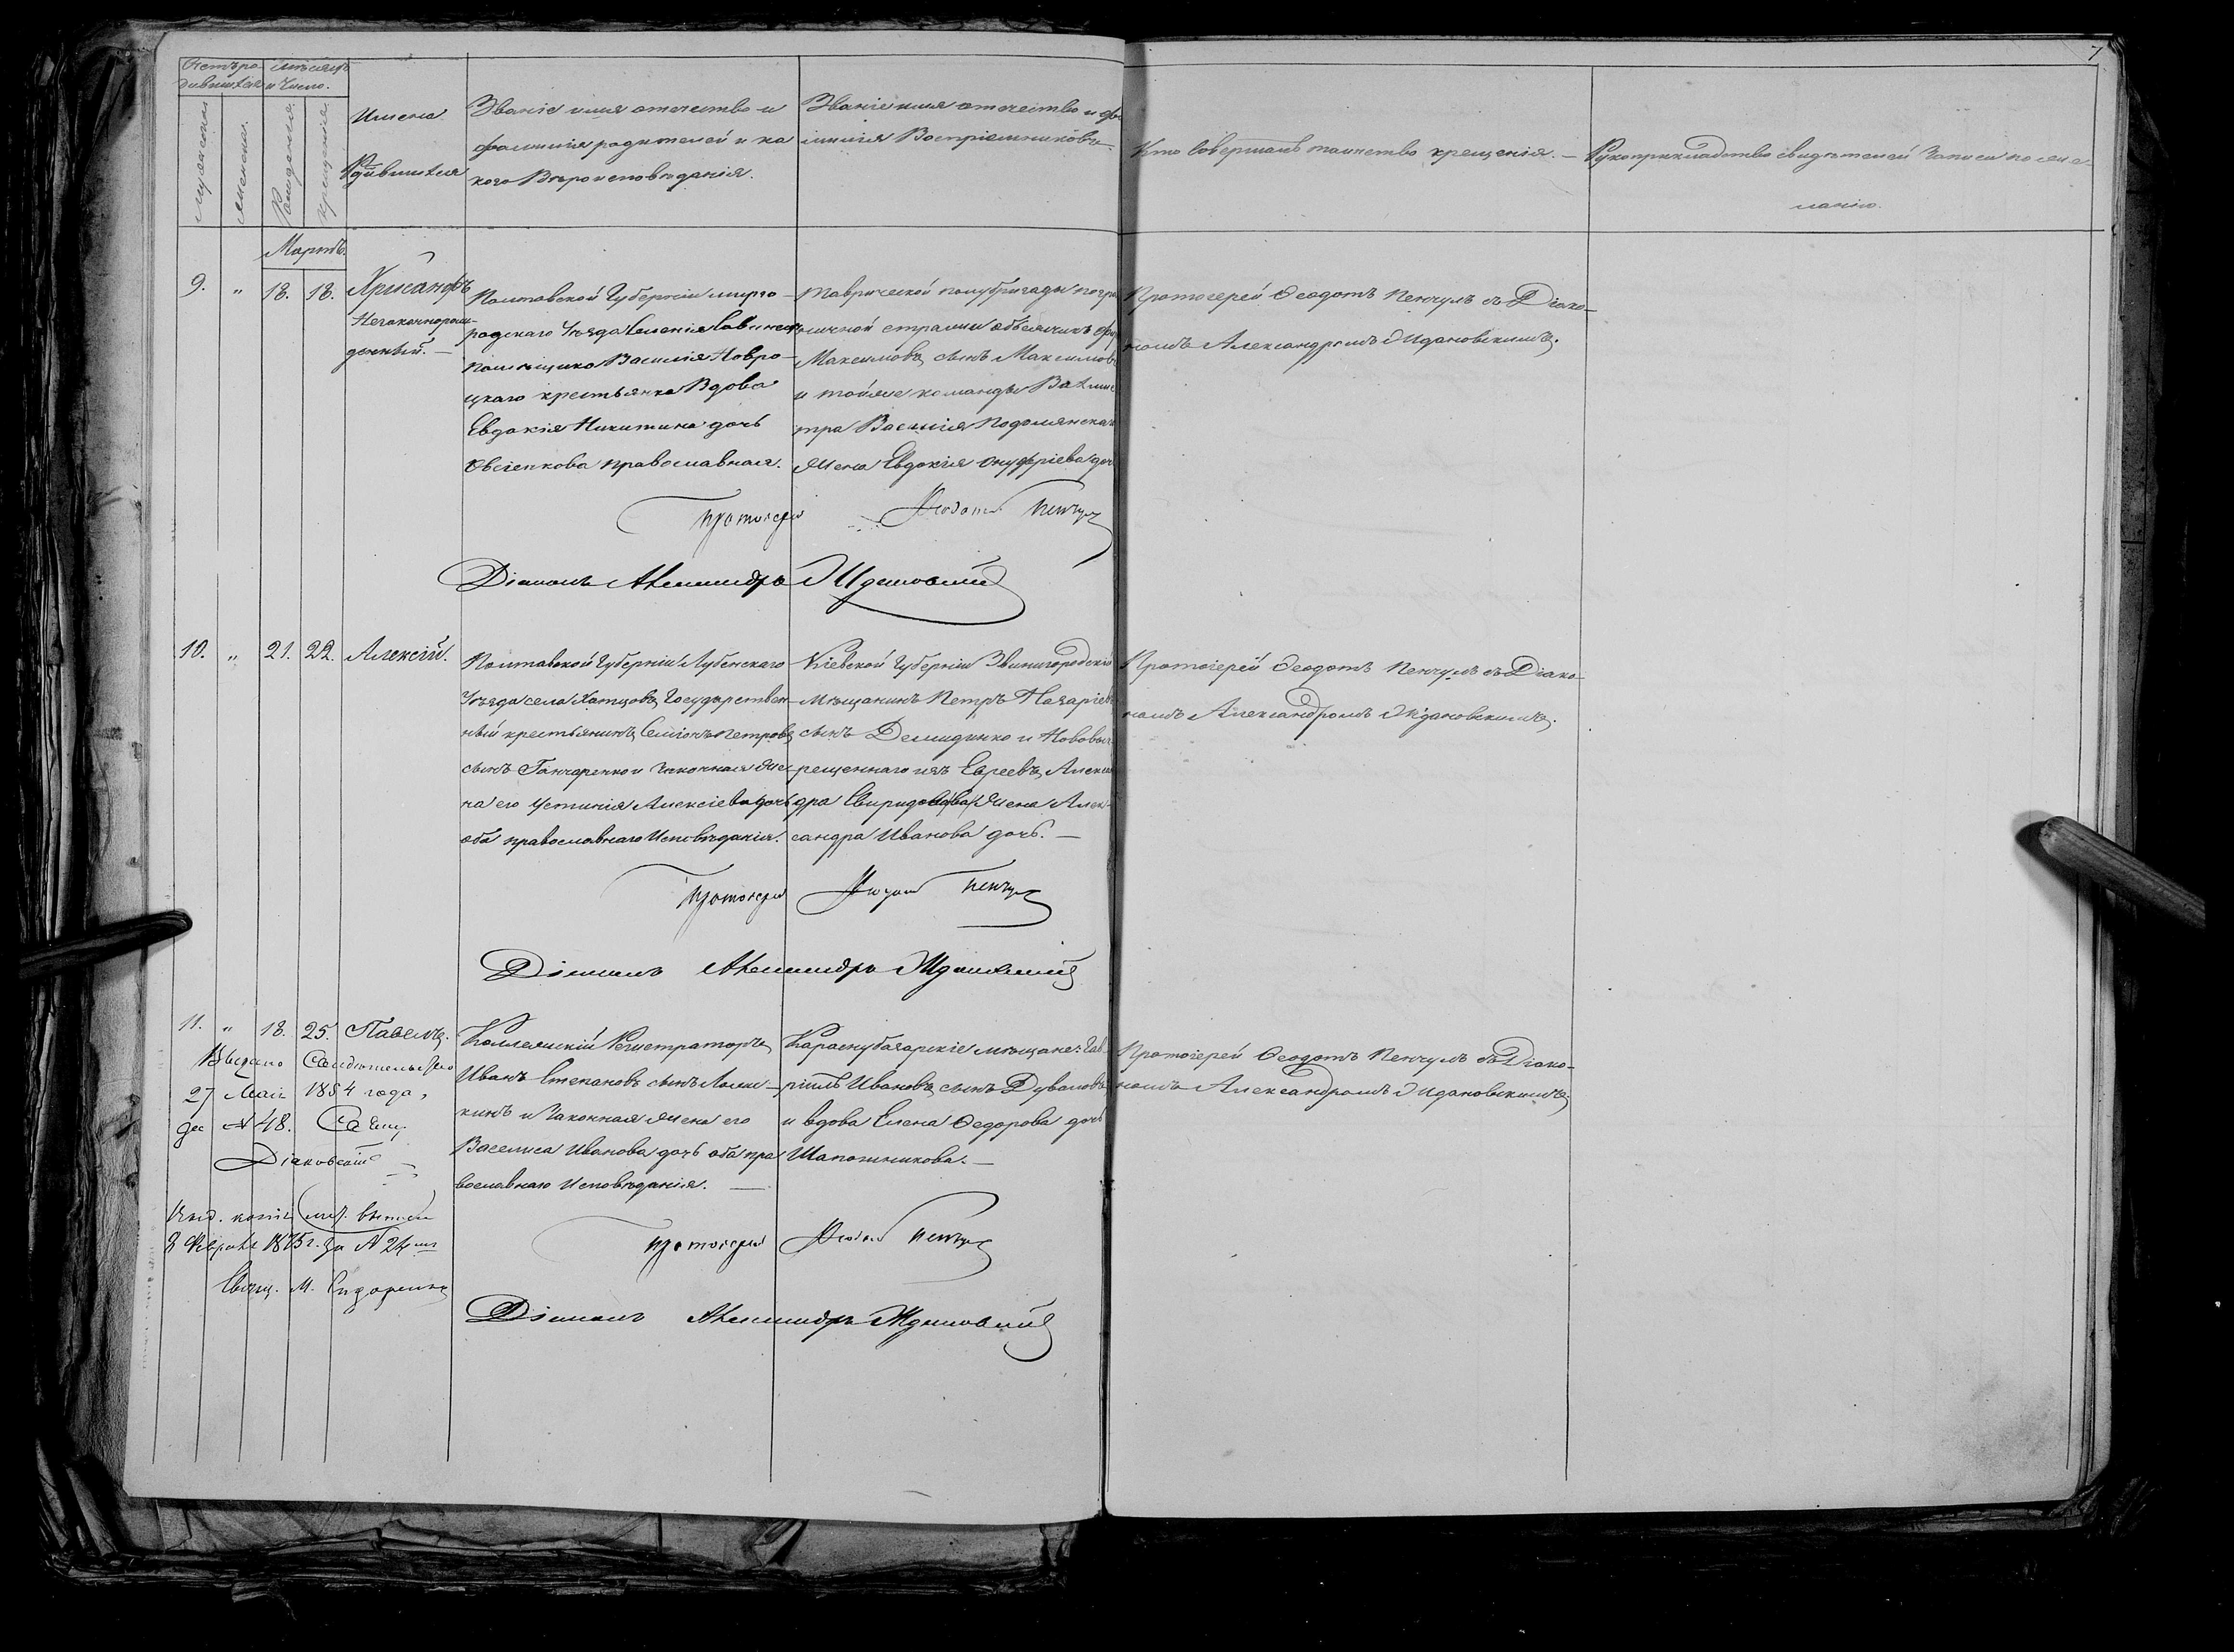 7
Счетъ ро- Мѣсяцъ
дившихся и число.
Мужескаго
Женскаго.
Рожденія
Крещенія
Имена
Родившихся
Званіе имя отчество и
фамилія родителей и ка
кого Вѣроисповѣданія.
Званіе имя отчество и фа
милія Воспріемниковъ.
Кто совершалъ таинство крещенія. —
Рукоприкладство свидѣтелей записи по же
ланію.
Мартъ.
9. " 18. 18. Хрисанфъ
Незаконнорож-
денный. —
Полтавской Губерніи мирго-
родскаго Уѣзда Селенія Савинецъ
помѣщика Василія Новро-
цкаго крестьянка Вдова
Евдокія Никитина дочь
Овсіенкова православная.
Таврической полубригады погра
ничной стражи объездчикъ
Максимовъ сынъ Максимовъ
и тойже команды Вахмис
тра Василія Подолянскаго
Жена Евдокія Онуфріева доч
Протоіерей Ѳеодотъ Пенчулъ съ Діако-
номъ Александромъ Ждановскимъ.
Протоіерей Ѳеодотъ Пенчулъ
Діаконъ Александръ Ждановскій
10. " 21. 22. Алексій.
Полтавской Губерніи Лубенскаго
Уѣзда села Хатцовъ Государствен-
ный крестьянинъ Семіонъ Петровъ
сынъ Ганчаренко и Законная Же-
на его Устинія Алексіева дочь
оба православнаго Исповѣданія.
Кіевской Губерніи Звинигородскій
Мѣщанинъ Петръ Назаріевъ
сынъ Демиденко и Нововык
рещеннаго изъ Евреевъ, Алексан
дра Свиридова Жена Алек-
сандра Иванова дочь. —
Протоіерей Ѳеодотъ Пенчулъ съ Діако-
номъ Александромъ Ждановскимъ.
Протоіерей Ѳеодотъ Пенчулъ
Діаконъ Александръ Ждановскій
11. " 18. 25. Павелъ.
Выдано Свидѣтельство
27 Мая 1854 года,
за № 48. Свящ.
Діаковскій
Выд. копія мет. выписи
8 Февраля 1875 г. за № 24
Свящ. М. Сидоренко
Коллежскій Регистраторъ
Иванъ Степановъ сынъ
кинъ и Законная жена его
Василиса Иванова дочь оба пра
вославнаго Исповѣданія. —
Карасубазарскіе мѣщане: Гав-
ріилъ Ивановъ сынъ Дуваловъ
и вдова Елена Ѳедорова дочь
Шапошникова. —
Протоіерей Ѳеодотъ Пенчулъ съ Діако-
номъ Александромъ Ждановскимъ.
Протоіерей Ѳеодотъ Пенчулъ
Діаконъ Александръ Ждановскій